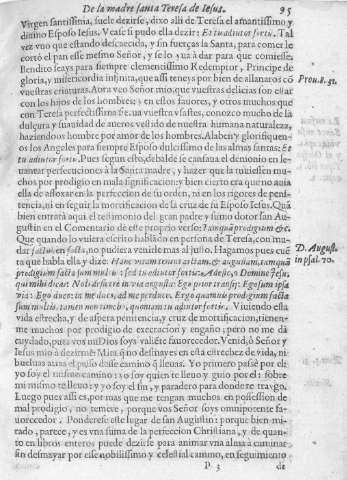 De la madre santa Teresa de Iesus. 95
Virgen santissima, suele dezirse, dixo alli de Teresa el amantissimo y
diuino Esposo Iesus. Vease si pudo ella dezir: Et tu adiutor fortis. Tal
vez vuo que estando descaecida, y sin fuerças la Santa, para comer le
cortò el pan esse mesmo Señor, y se lo yua à dar para que comiesse.
Bendito seays para siempre clementissimo Redemptor, Principe de
gloria, y misericordia infinita, que assi teneys por bien de allanaros cõ
Prou. 8. 31.
vuestras criaturas. Aora veo Señor mio, que vuestras delicias son estar
con los hijos de los hombres: y en estos fauores, y otros muchos que
con Teresa perfectissima vuestra vsastes, conozco mucho de la
dulçura y suauidad de aueros vestido de nuestra humana naturaleza,
haziendoos hombre por amor de los hombres. Alaben y glorifiquen-
os los Angeles para siempre Esposo dulcissimo de las almas santas: Et
tu adiutor fortis. Pues segun esto, debalde se cansaua el demonio en le-
uantar persecuciones à la Santa madre, y hazer que la tuuiessen mu-
chos por prodigio en mala significacion: y bien cierto era que no auia
ella de afloxar en la perfeccion de su orden, ni en los rigores de peni-
tencia, ni en seguir la mortificacion de la cruz de su Esposo Iesus. Quã
bien entrarà aqui el testimonio del gran padre y sumo dotor san Au-
gustin en el Comentario de este proprio verso: Tanquã prodigium &c.
Que quando lo vuiera escrito hablãdo en persona de Teresa, con mu-
D. August.
in psal. 70.
dar factus en facta, no pudiera venirle mas al justo. Hagamos pues cuẽ
ta que habla ella y dize: Hanc viam tenui arctam, & angustam, tamquã
prodigium facta sum multis: sed tu adiutor fortis. Adesto, o Domine Iesu,
qui mihi dicas: Noli deficere in via angusta: Ego prior transij: Ego sum ipsa
via: Ego duco: in me duco, ad me perduco. Ergo quamuis prodigium facta
sum multis, tamen non timebo, quoniam tu adiutor fortis. Viuiendo esta
vida estrecha, y de aspera penitencia, y cruz de mortificacion, tienen-
me muchos por prodigio de execracion y engaño; pero no me dà
cuydado, pues vos mi Dios soys valiẽte fauorecedor. Venid, ò Señor y
Iesus mio à dezirme: Mira q̃ no desmayes en esta estrechez de vida, ni
bueluas atras el passo desse camino q̃ lleuas. Yo primero passè por el:
yo soy el mesmo camino: yo soy quien te lleuo y guio por el: sobre
mi mismo te lleuo: y yo soy el fin, y paradero para donde te traygo.
Luego pues assi es, por mas que me tengan muchos en possession de
mal prodigio, no temere, porque vos Señor soys omnipotente fa-
uorecedor. Ponderese este lugar de san Augustin: porque bien mi-
rado, parece, y es vna suma de la perfeccion Christiana, y de quan-
to en libros enteros puede dezirse para animar vna alma à caminar
sin desmayar por esse nobilissimo y celestial camino, en seguimiento
P. 3 de